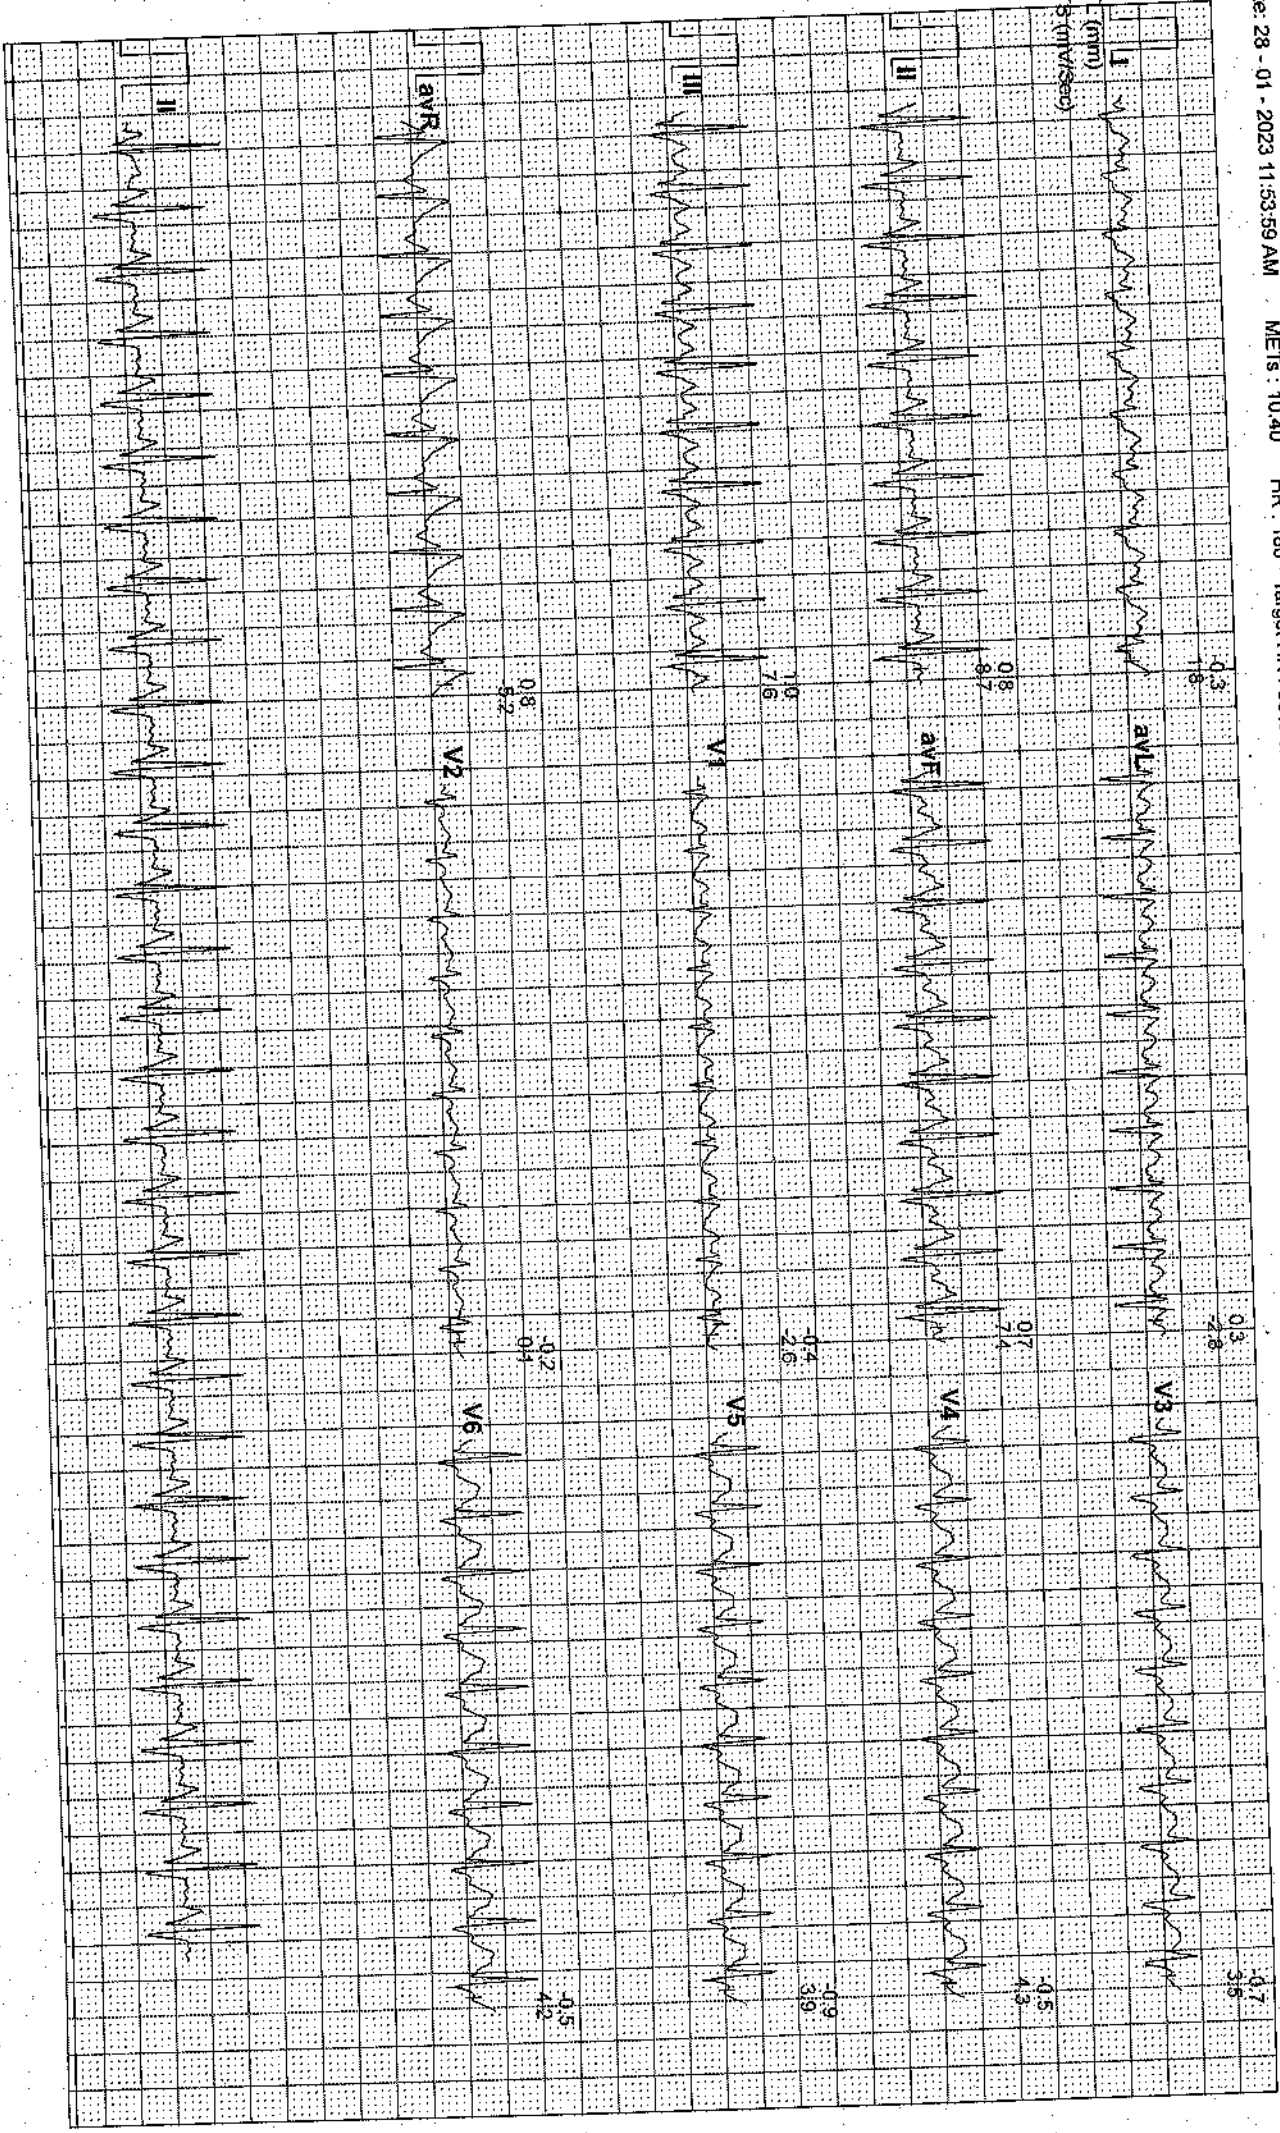 e: 28 - 01 - 2023 11:53:59 AM METs : 10.40
(mm)
(mV/Sec)
I
-0.3
1.8
avL
0.3
-2.8
V3
-0.7
3.5
II
0.8
8.7
avF
0.7
7.4
V4
-0.5
4.3
III
1.0
7.6
V1
-0.4
2.6
V5
-0.9
3.9
avR
V2
-0.2
0.1
V6
-0.5
4.2
II